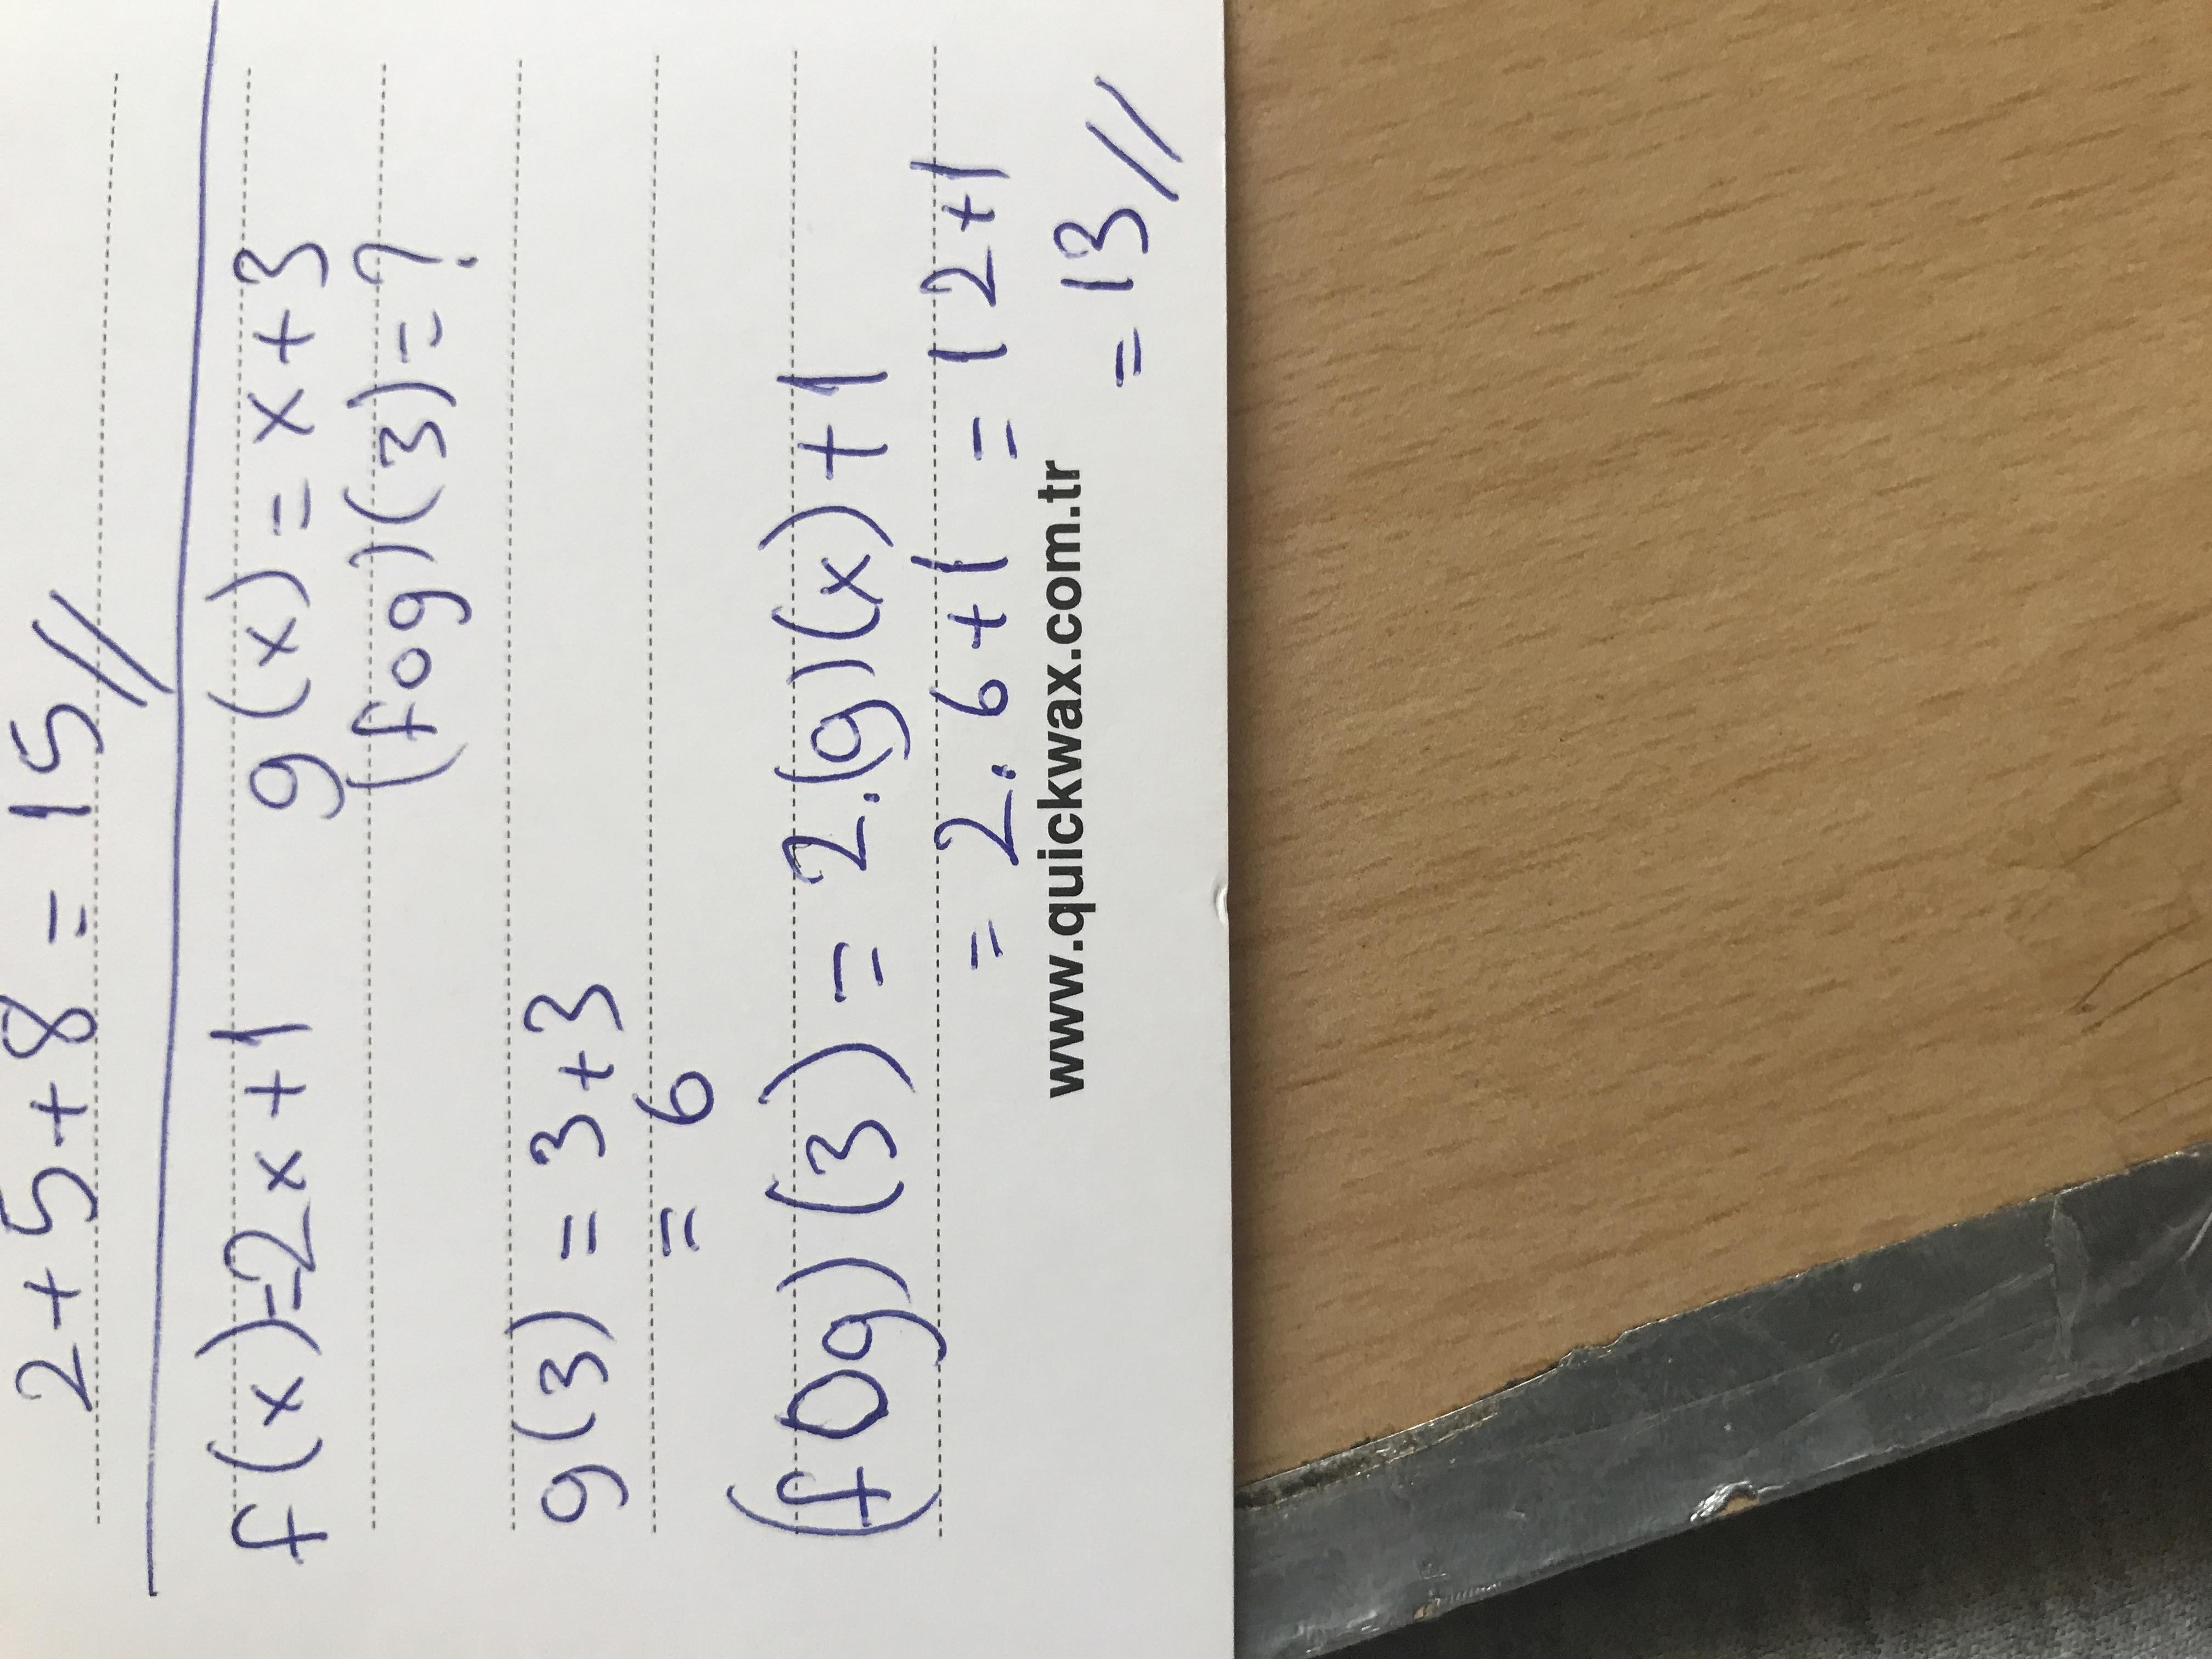 2+5+8=15//
f(x)=2x+1 g(x)=x+3
(fog)(3)=?
g(3)=3+3
=6
(fog)(3)=2.(g)(x)+1
=2.6+1=12+1
=13//
www.quickwax.com.tr